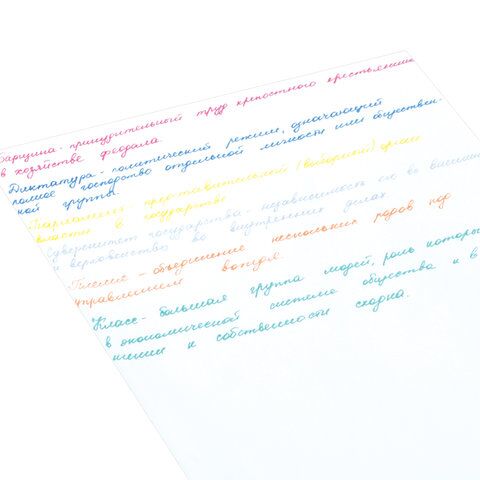 барщина - принудительный труд крепостного крестьянина
в хозяйстве феодала.
Диктатура - политический режим, означающий
полное господство отдельной личности или обществен-
ной группы.
Парламент представителей (выборный) орган
власти в государстве
Суверенитет государства - независимость его во внешних
и верховенство во внутренних делах
Племя - объединение нескольких родов под
управлением вождя.
Класс - большая группа людей, роль которых
в экономической системе общества и в
шении к собственности сходна.